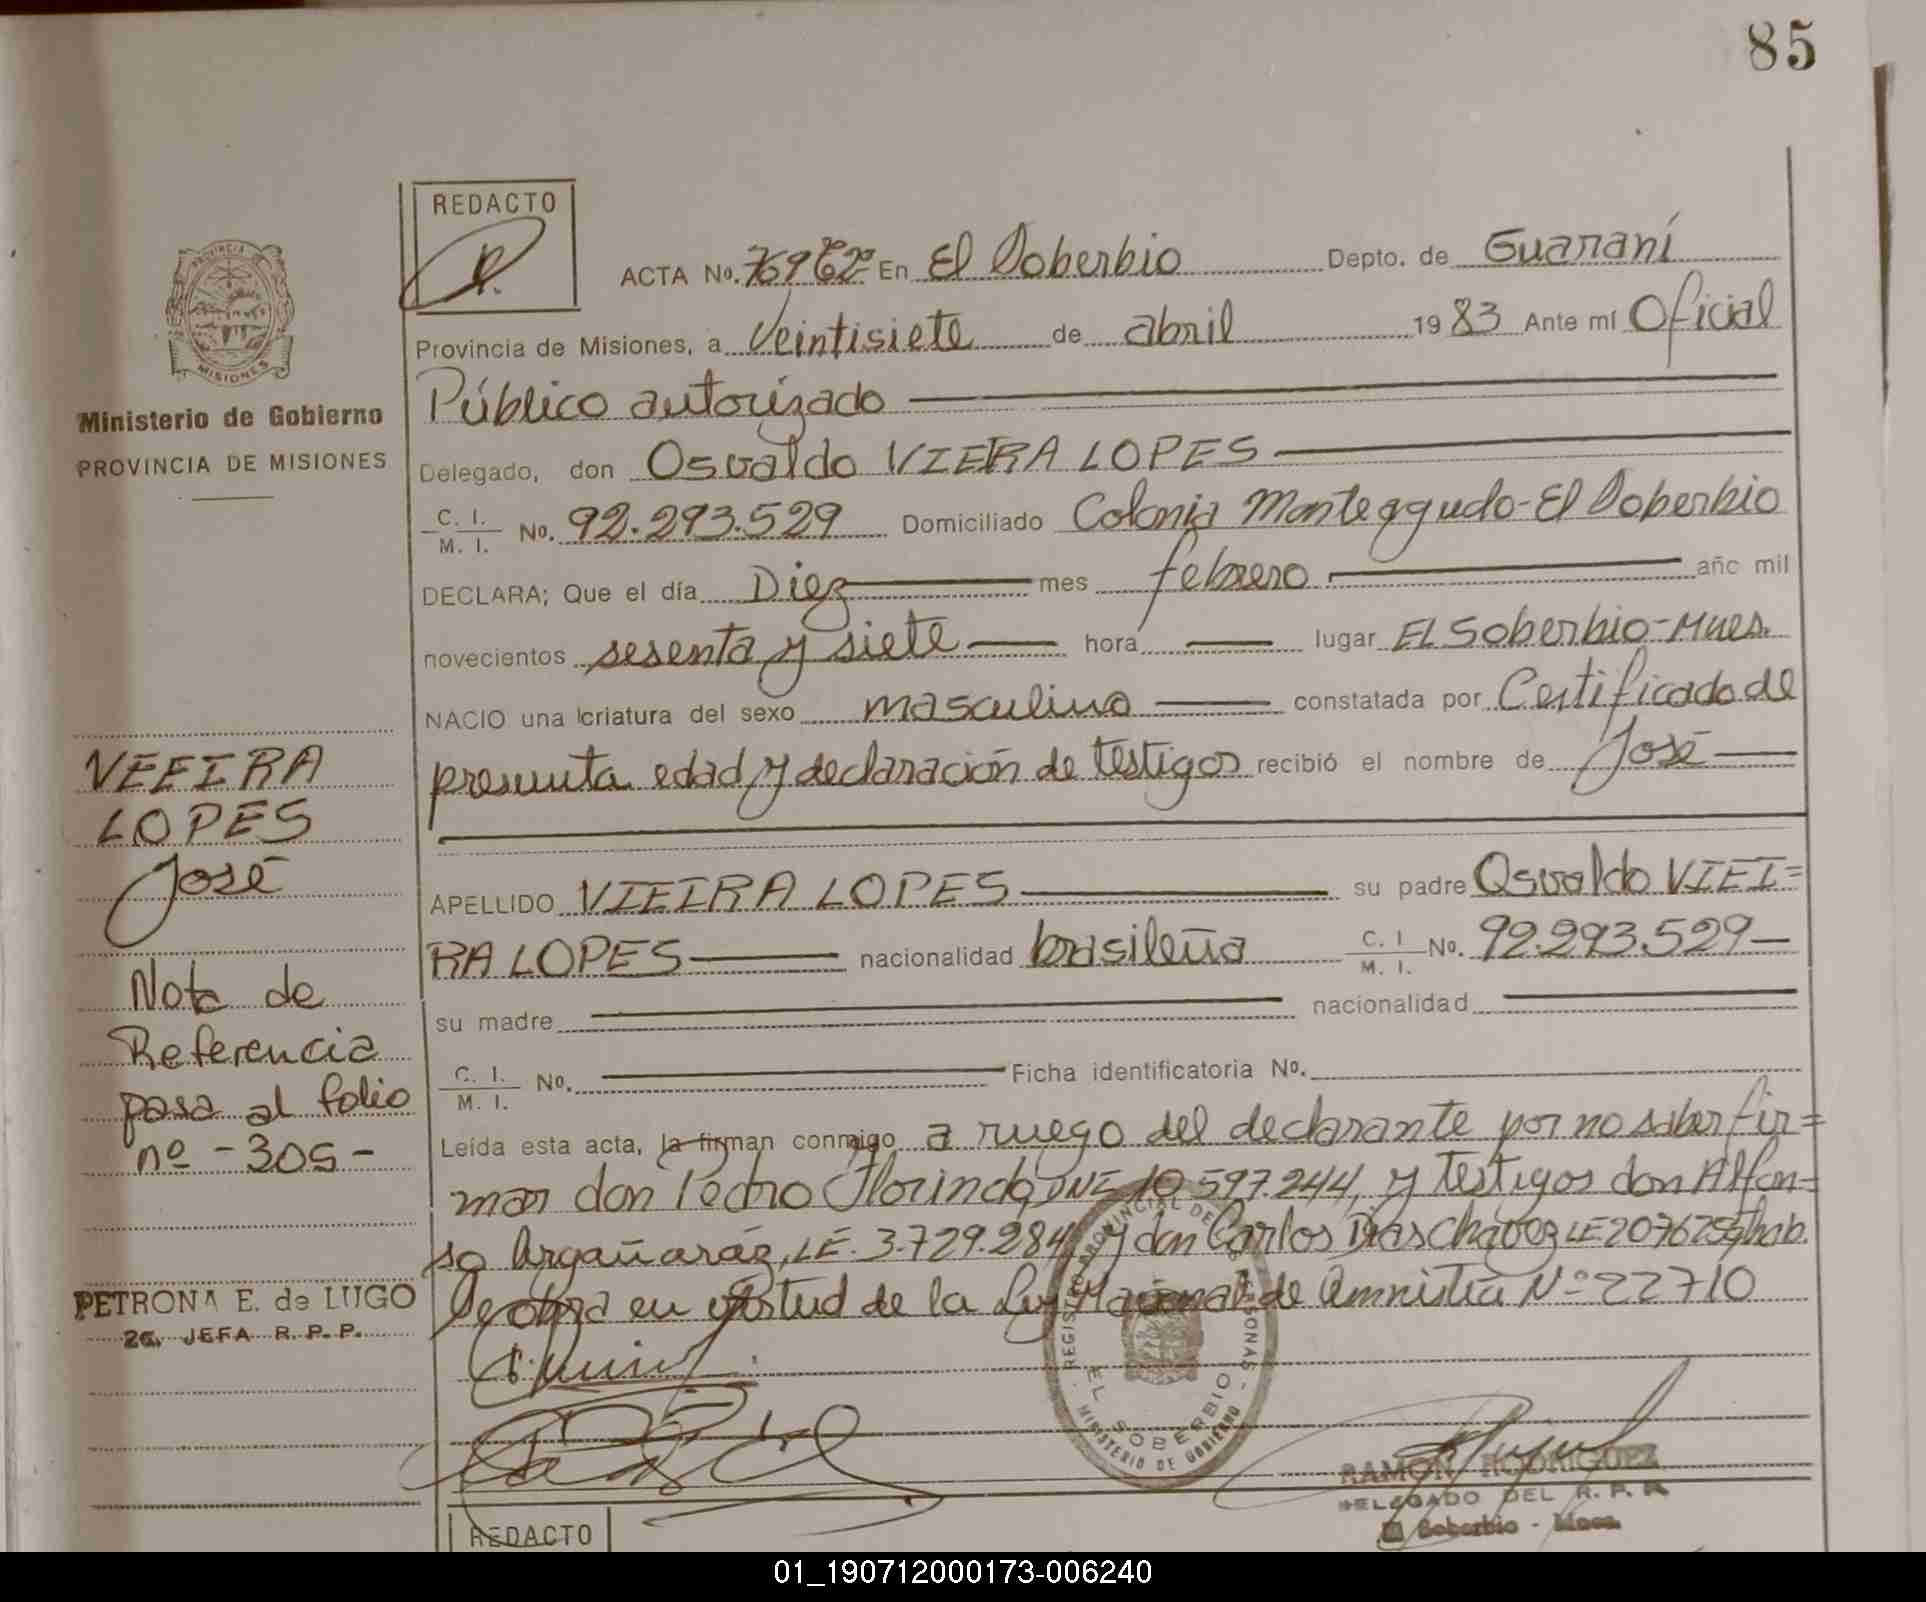 85
REDACTO
ACTA No. 769 En El Soberbio Depto. de Guaraní
Provincia de Misiones, a Veintisiete de abril 1983 Ante mí Oficial
Público autorizado
Delegado, don Osvaldo VIEIRA LOPES
C. I. / M. I. No. 92.293.529 Domiciliado Colonia Monteagudo-El Soberbio
DECLARA; Que el día Diez mes febrero año mil
novecientos sesenta y siete hora lugar El Soberbio-Mnes.
NACIO una criatura del sexo masculino constatada por Certificado de
presunta edad y declaración de testigos recibió el nombre de José
APELLIDO VIEIRA LOPES su padre Osvaldo VIEI=
RA LOPES nacionalidad brasileña C. I / M. I. No. 92.293.529
su madre nacionalidad
C. I. / M. I. No. Ficha identificatoria No.
Leída esta acta, la firman conmigo a ruego del declarante por no saber fir=
mar don Pedro Florindo, DNI 10.597.244, y testigos don Alfon=
so Argañaráz, LE. 3.729.284 y don Carlos Días Chávez LE 2076259 hab.
Se obra en virtud de la Ley Nacional de Amnistía Nº 22710
Ministerio de Gobierno
PROVINCIA DE MISIONES
PROVINCIA DE
MISIONES
VEEIRA
LOPES
José
Nota de
Referencia
pasa al folio
nº -305-
PETRONA E. de LUGO
2a. JEFA R. P. P.
REGISTRO PROVINCIAL DE PERSONAS
EL SOBERBIO
MINISTERIO DE GOBIERNO
RAMON RODRIGUEZ
DELEGADO DEL R. P. P.
El Soberbio - Mnes.
REDACTO
01_190712000173-006240